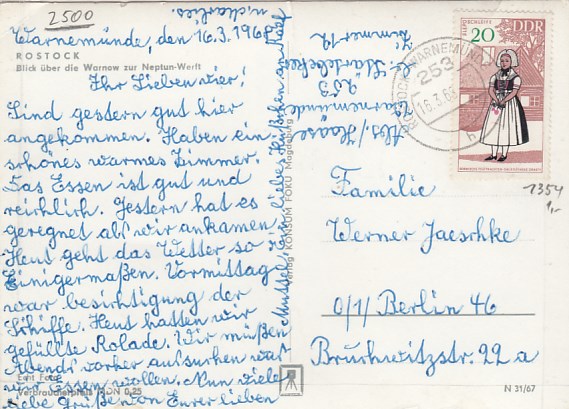 2500
Warnemünde, den 16.3.1968
ROSTOCK
Blick über die Warnow zur Neptun-Werft
Ihr Lieben vier!
Sind gestern gut hier
angekommen. Haben ein
schönes warmes Zimmer.
Das Essen ist gut und
reichlich. Gestern hat es
geregnet als wir ankamen
Heut geht das Wetter so
Einigermaßen. Vormittag
war besichtigung der
Schiffe. Heut hatten wir
gefüllte Rolade. Wir müßen
Abends vorher aufsuchen was
wir Essen wollen. Nun viele
liebe Grüße von Eurer lieben
Mutter
Küßchen an
u. Charlies.
Echt Foto
Verbraucherpreis MDN 0,25
Verlag KONSUM FOKU Magdeburg
Abs. Haase
Warnemünde
Zimmer 12
DDR
20
ROSTOCK-WARNEMÜNDE
253
16.3.68
1354
1,-
Familie
Werner Jaeschke
0/1/Berlin 46
Bruchwitzstr. 22 a
N 31/67